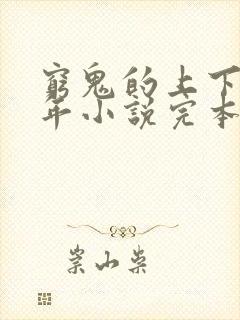 窮鬼的上下
年小說完本
崇山柴